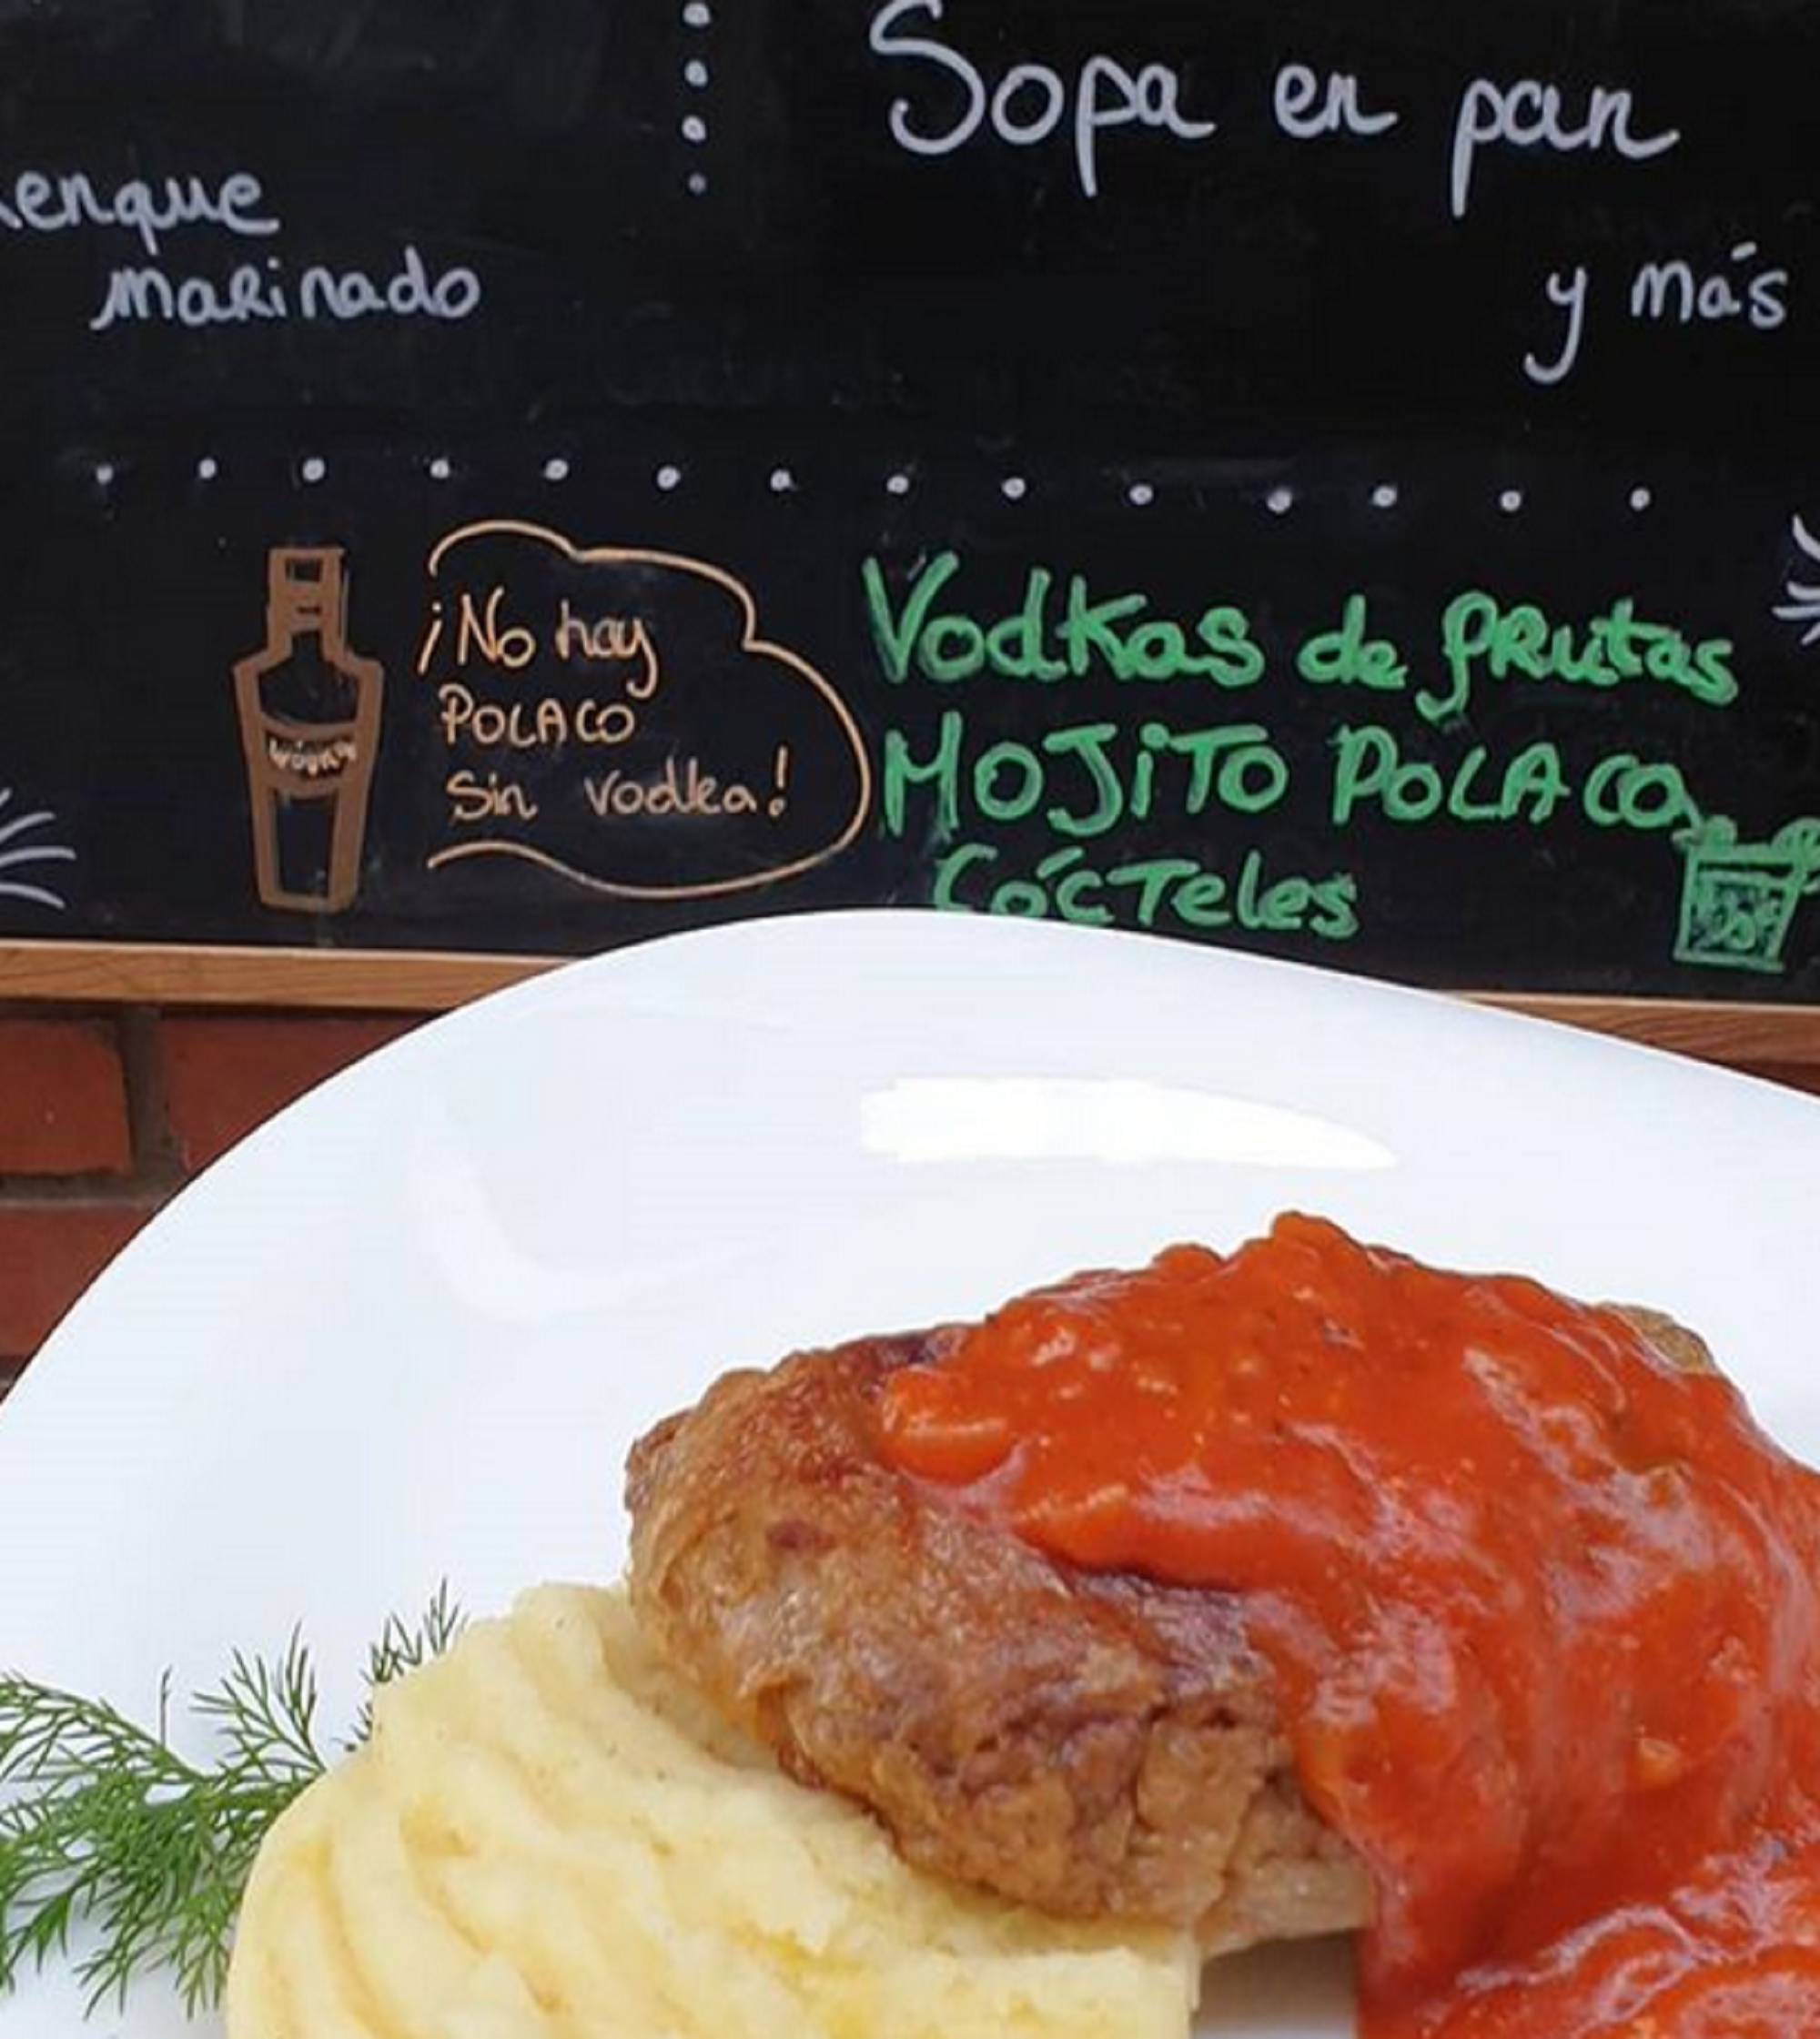 Sopa en pan
enque
marinado
y más
¡No hay
POLACO
sin vodka!
Vodkas de frutas
MOJITO POLACO
CÓCTeles